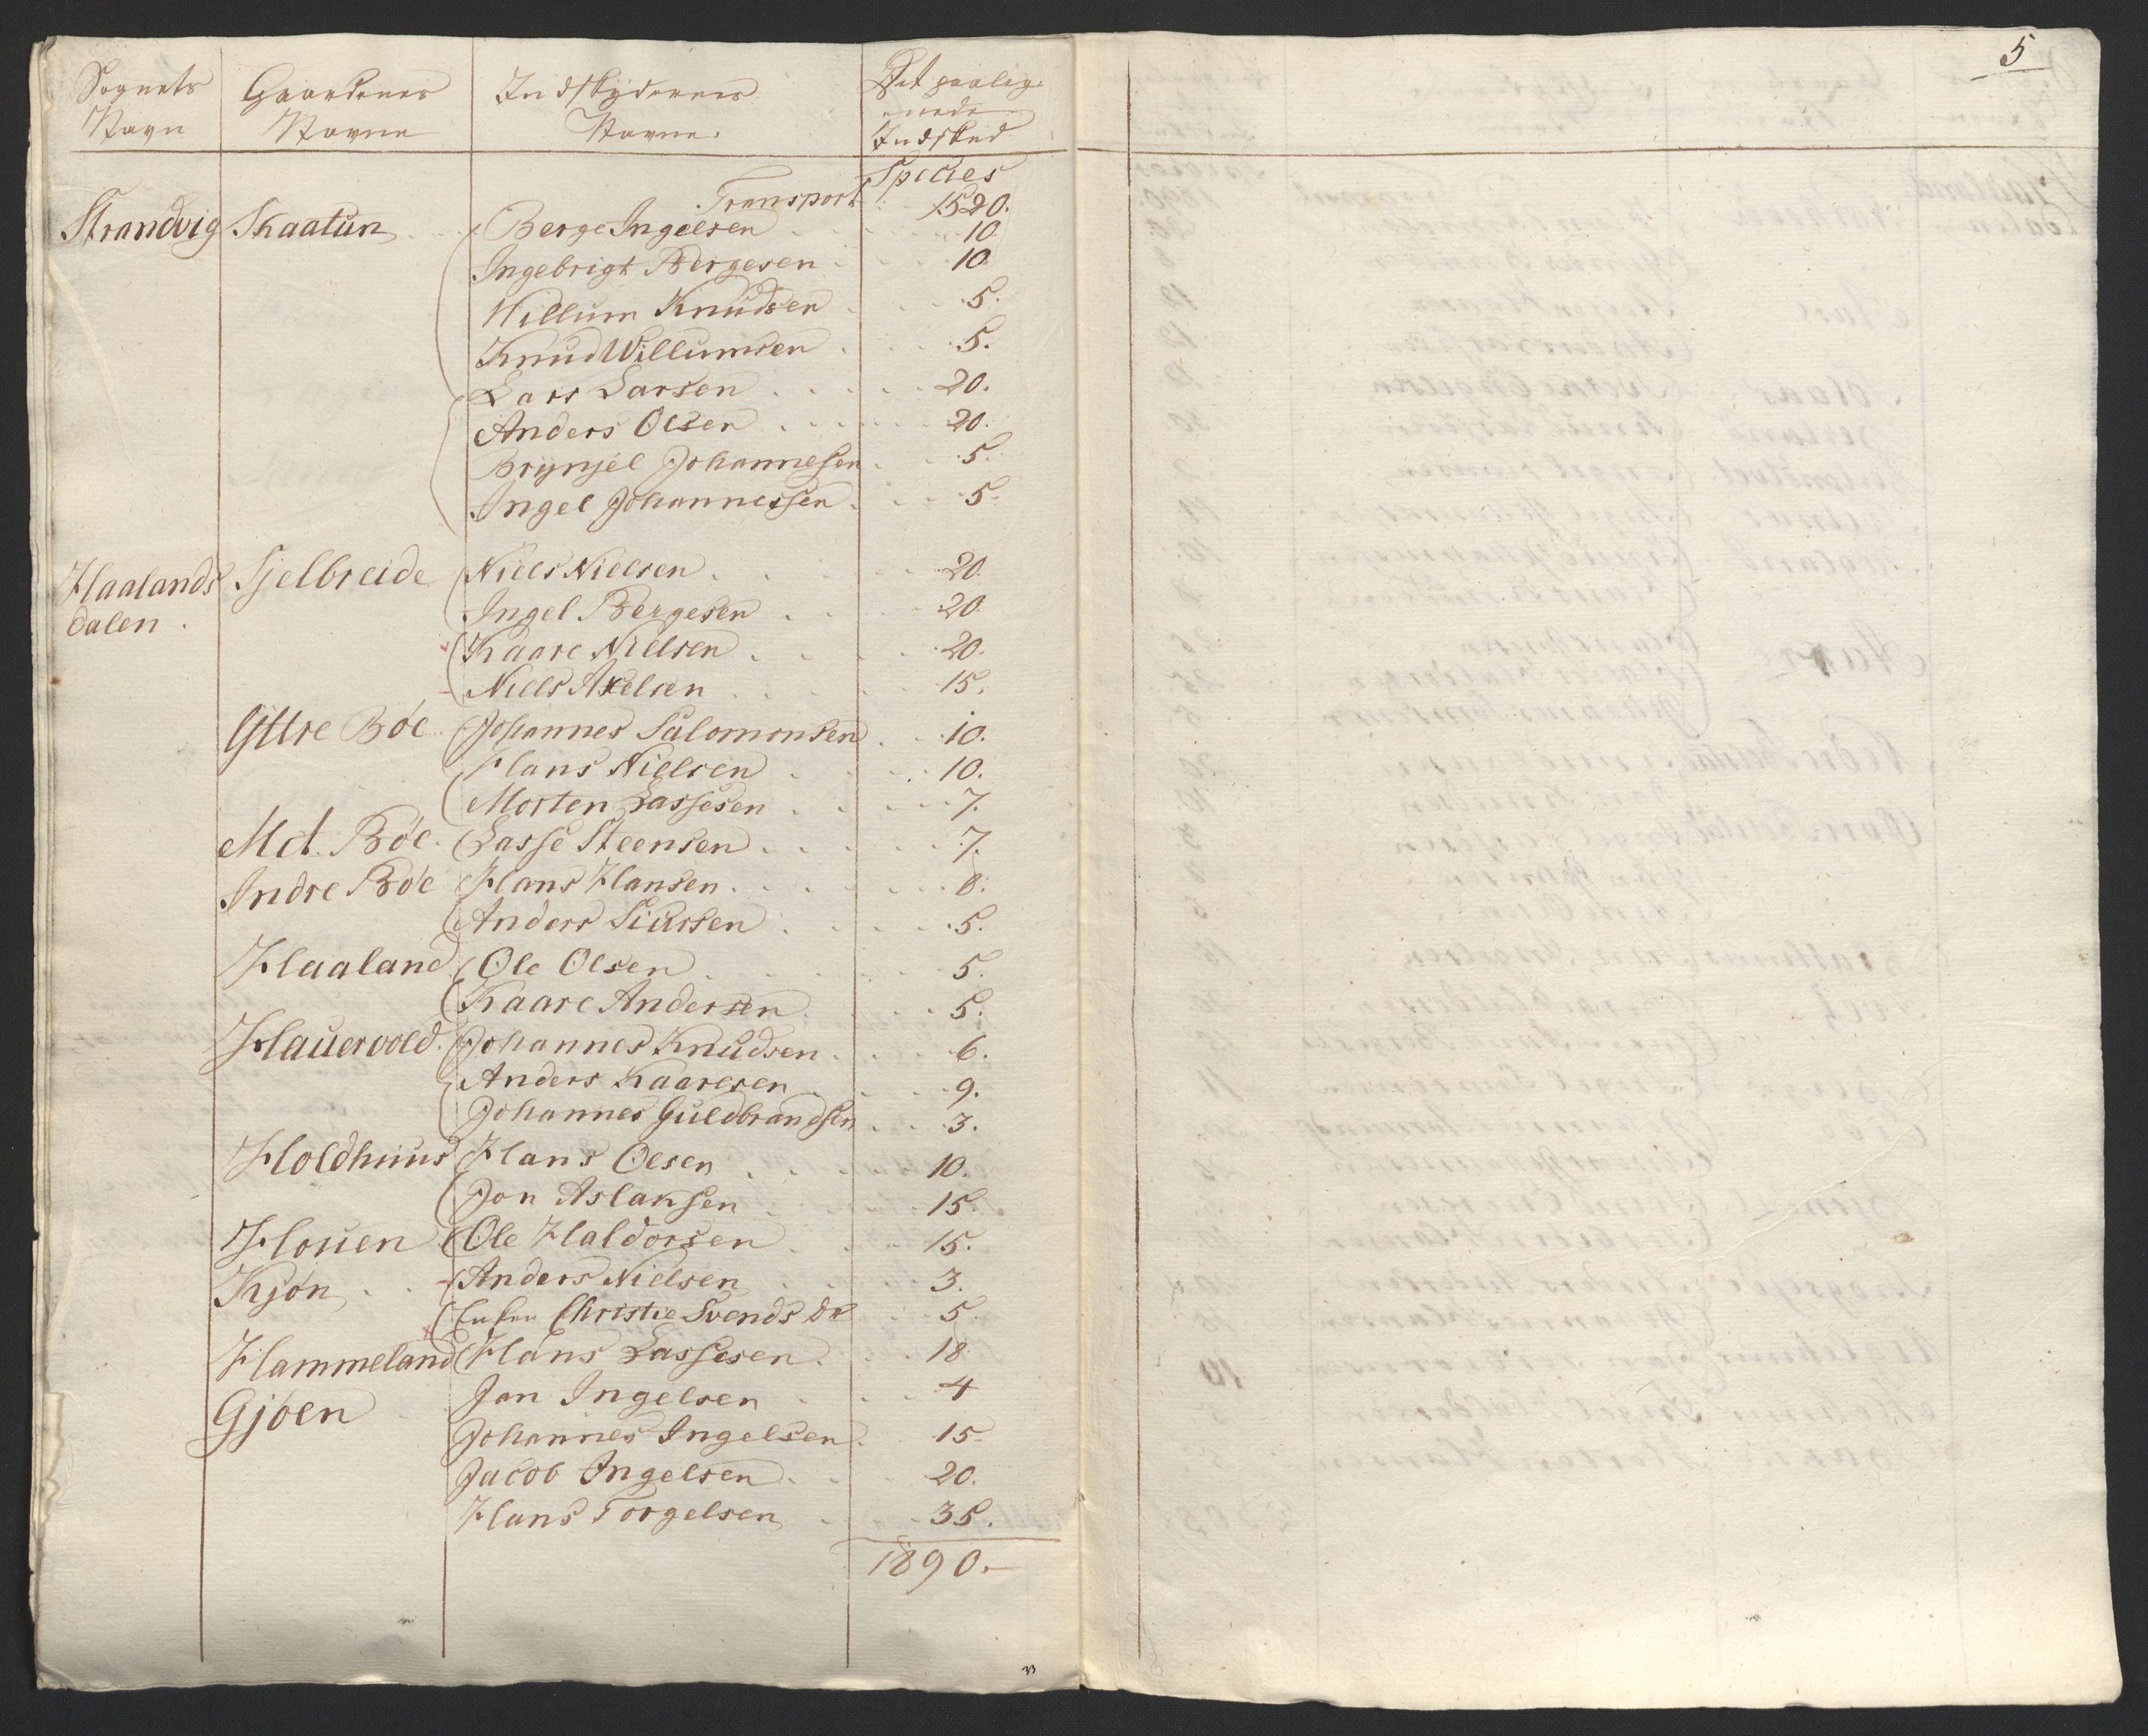 5
Sognets Navn | Gaardenes Navne | Indskydernes Navne | Det paalignede Indskud
Species
Transport 1520.
Strandvig | Skaatun | Berge Ingelsen 10
Ingebrigt Bergesen 10
Willum Knudsen 5.
Knud Willumsen 5.
Lars Larsen 20.
Anders Olsen 20.
Brynjel Johannesen 5.
Ingel Johannessen 5
Haalands dalen. | Sjelbreide | Niels Nielsen 20.
Ingel Bergesen 20
Kaare Nielsen 20.
Niels Axelsen 15.
Yttre Bøe | Johannes Salomonsen 10.
Hans Nielsen 10.
Morten Lassesen 7.
Md. Bøe | Lasse Steensen 7.
Indre Bøe | Hans Hansen 8.
Anders Siursen 5.
Haaland | Ole Olsen 5.
Kaare Andersen 5.
Hauervold | Johannes Knudsen 6.
Anders Kaaresen 9.
Johannes Guldbrandsen 3.
Holdhuus | Hans Olsen 10.
Jon Aslaksen 15.
Houen | Ole Haldorsen 15.
Kjøn | Anders Nielsen 3.
Enken Christie Svends dr 5.
Hammeland | Hans Lassesen 18
Gjøen | Jan Ingelsen 4
Johannes Ingelsen 15
Jacob Ingelsen 20.
Hans Torgelsen 35.
1890.